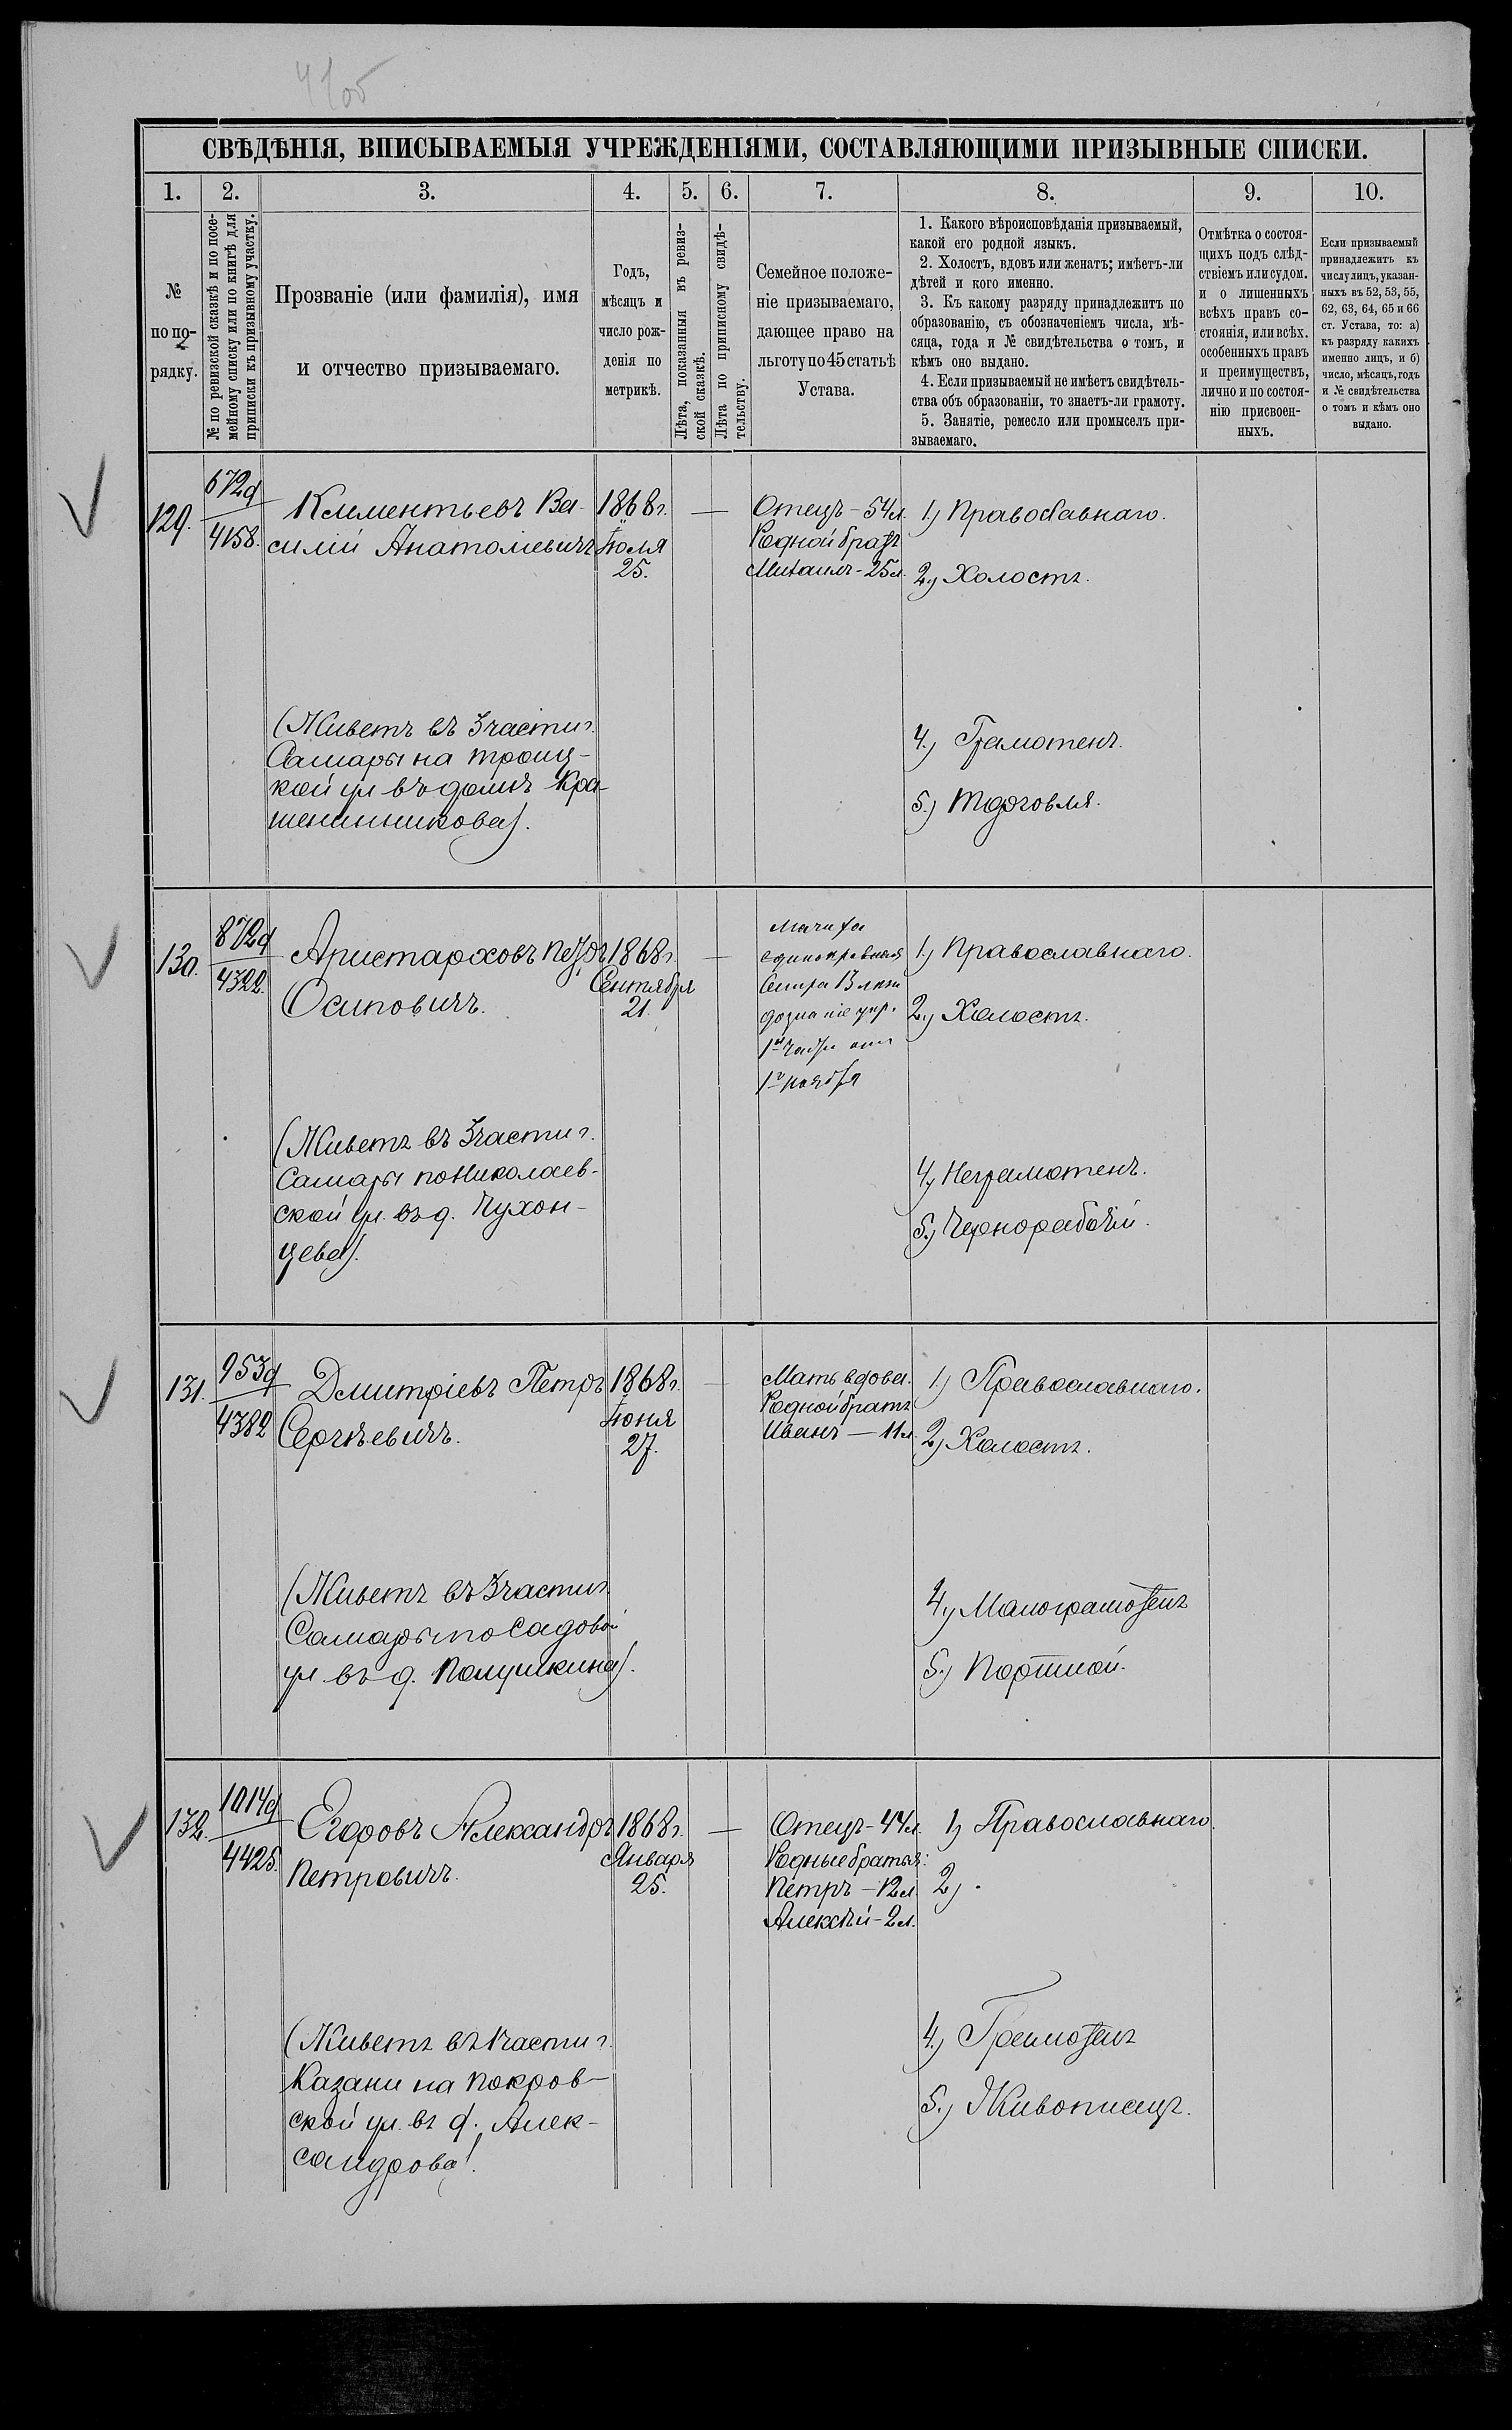 41об
СВѢДѢНІЯ, ВПИСЫВАЕМЫЯ УЧРЕЖДЕНІЯМИ, СОСТАВЛЯЮЩИМИ ПРИЗЫВНЫЕ СПИСКИ.
1. 2. 3. 4. 5. 6. 7. 8. 9. 10.
№
по по-
рядку.
№ по ревизской сказкѣ и по посе-
мейному списку или по книгѣ для
приписки къ призывному участку.
Прозваніе (или фамилія), имя
и отчество призываемаго.
Годъ,
мѣсяцъ и
число рож-
денія по
метрикѣ.
Лѣта, показанныя въ ревиз-
ской сказкѣ.
Лѣта по приписному свидѣ-
тельству.
Семейное положе-
ніе призываемаго,
дающее право на
льготу по 45 статьѣ
Устава.
1. Какого вѣроисповѣданія призываемый,
какой его родной языкъ.
2. Холостъ, вдовъ или женатъ; имѣетъ-ли
дѣтей и кого именно.
3. Къ какому разряду принадлежитъ по
образованію, съ обозначеніемъ числа, мѣ-
сяца, года и № свидѣтельства о томъ, и
кѣмъ оно выдано.
4. Если призываемый не имѣетъ свидѣтель-
ства объ образованіи, то знаетъ-ли грамоту.
5. Занятіе, ремесло или промыселъ при-
зываемаго.
Отмѣтка о состоя-
щихъ подъ слѣд-
ствіемъ или судом.
и о лишенныхъ
всѣхъ правъ со-
стоянія, или всѣх.
особенныхъ правъ
и преимуществъ,
лично и по состоя-
нію присвоен-
ныхъ.
Если призываемый
принадлежитъ къ
числу лицъ, указан-
ныхъ въ 52, 53, 55,
62, 63, 64, 65 и 66
ст. Устава, то: а)
къ разряду какихъ
именно лицъ, и б)
число, мѣсяцъ, годъ
и № свидѣтельства
о томъ и кѣмъ оно
выдано.
129.
672д
4158.
Климентьевъ Ва-
силій Анатоліевичъ
1868 г.
Іюля
25.
—
Отецъ - 54 л.
Родной братъ
Михаилъ - 25 л.
1.) Православнаго.
2.) Холостъ.
(Живетъ въ 3 части г.
Самары на Троиц-
кой ул въ домѣ Кра-
шенинникова).
4.) Грамотенъ.
5.) Торговля.
130.
872д
4322.
Аристарховъ Петръ
Осиповичъ.
1868 г.
Сентября
21.
—
Мачиха
единокровная
Сестра 13 лет
дознаніе
1й части
1го ноября
1.) Православнаго.
2.) Холостъ.
(Живетъ въ 3 части г.
Самары по Николаев-
ской ул. въ д. Чухон-
цева).
4.) Неграмотенъ.
5.) Чернорабочій.
131.
953д
4382
Дмитріевъ Петръ
Сергѣевичъ.
1868 г.
Іюня
27.
—
Мать вдова.
Родной братъ
Иванъ — 11 л.
1.) Православнаго.
2.) Холостъ.
(Живетъ въ 3 части г.
Самары по Садовой
ул. въ д. Полушкина).
4.) Малограмотенъ
5.) Портной.
132.
1014д
4425.
Егоровъ Александръ
Петровичъ.
1868 г.
Января
25.
—
Отецъ - 44 л.
Родные братья:
Петръ - 12 л.
Алексѣй - 2 л.
1.) Православнаго.
2.)
(Живетъ въ 1 части г.
Казани на Покров-
ской ул. въ д. Алек-
сандрова).
4.) Грамотенъ
5.) Живописецъ.